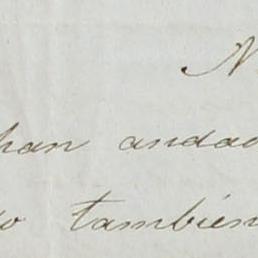 N
han andad
o también